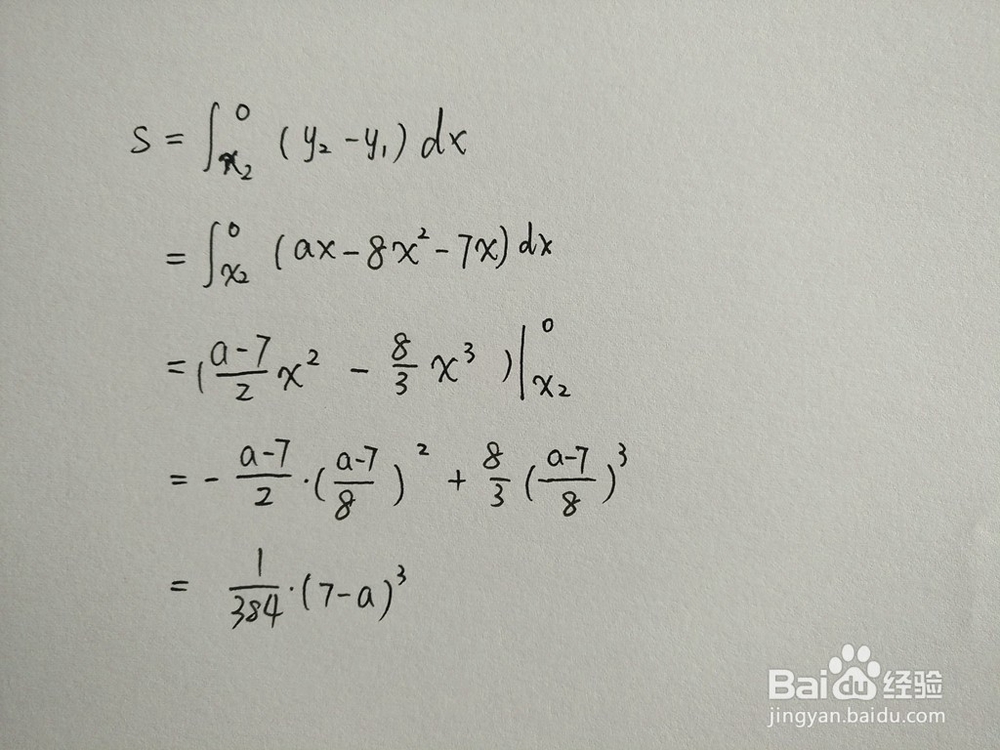 S = ∫_{x₂}^{0} (y₂ - y₁) dx
= ∫_{x₂}^{0} (ax - 8x² - 7x) dx
= ( \frac{a-7}{2} x² - \frac{8}{3} x³ ) |_{x₂}^{0}
= - \frac{a-7}{2} · ( \frac{a-7}{8} )² + \frac{8}{3} ( \frac{a-7}{8} )³
= \frac{1}{384} · (7-a)³
Baidu 经验
jingyan.baidu.com